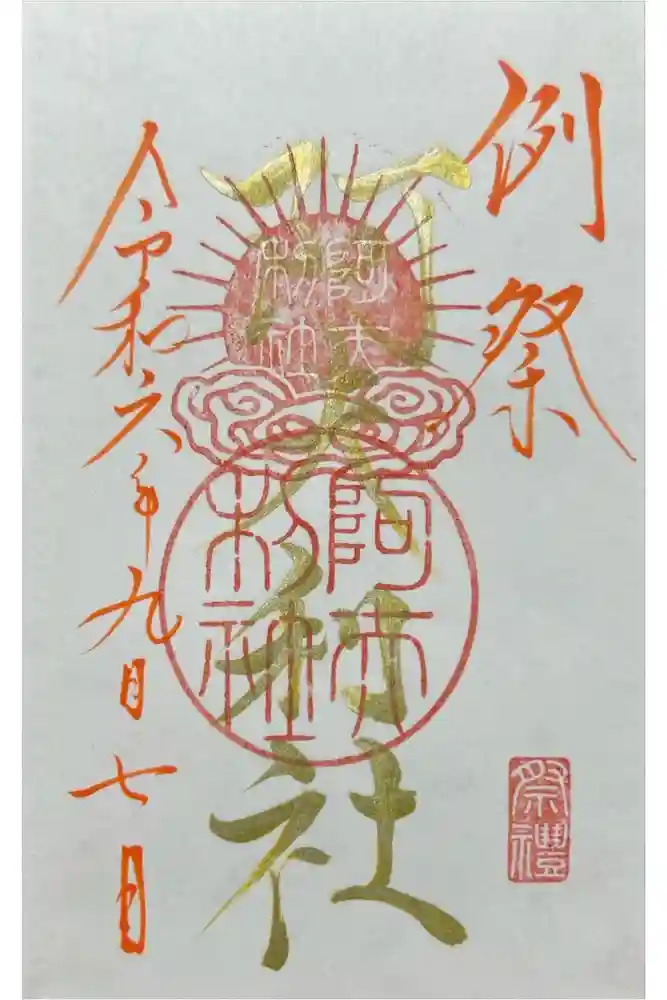 例祭
阿夫利社
阿夫利社
阿夫利社
令和六年九月七日
祭禮